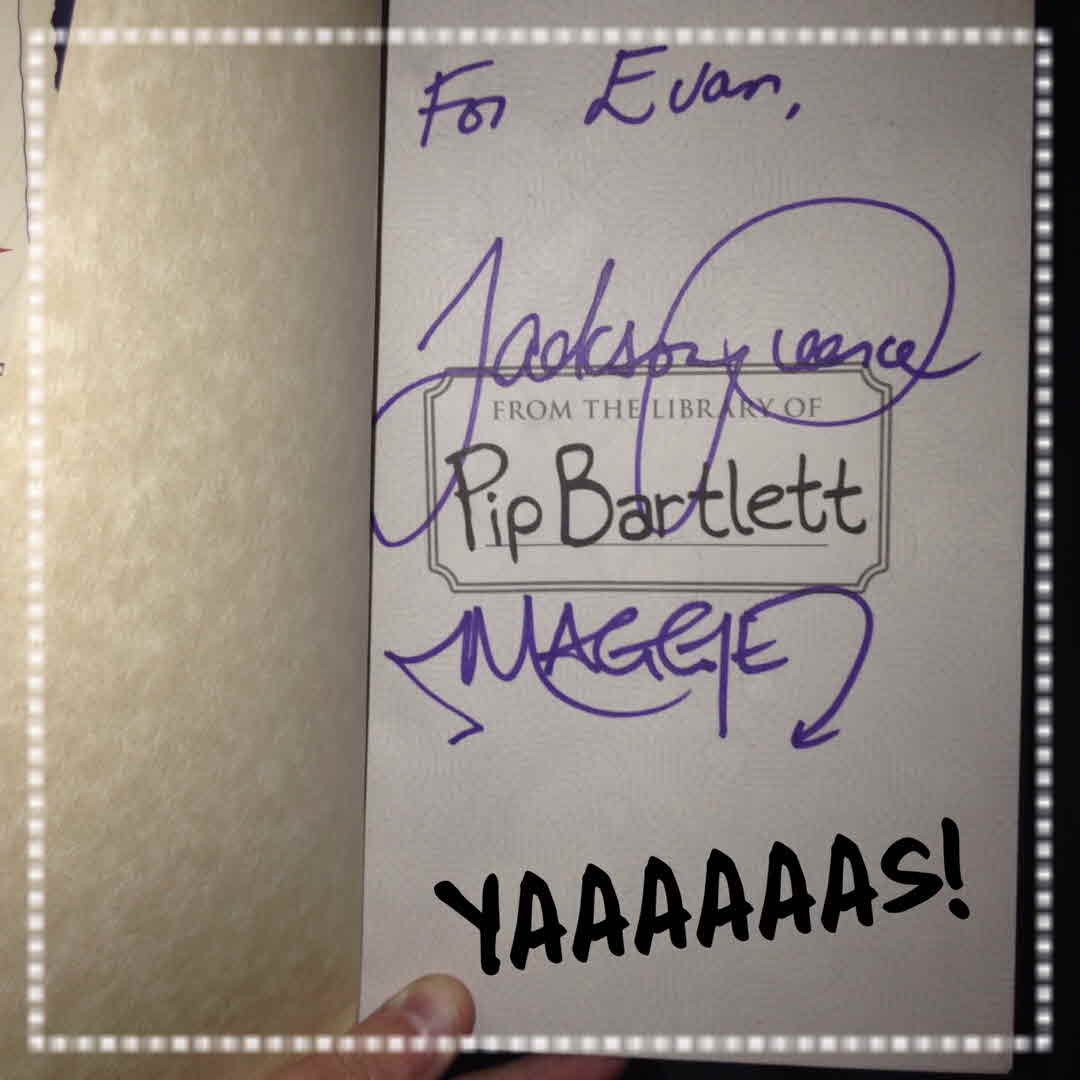 For Evan,
Jackson Pearce
FROM THE LIBRARY OF
Pip Bartlett
MAGGIE
YAAAAAAS!